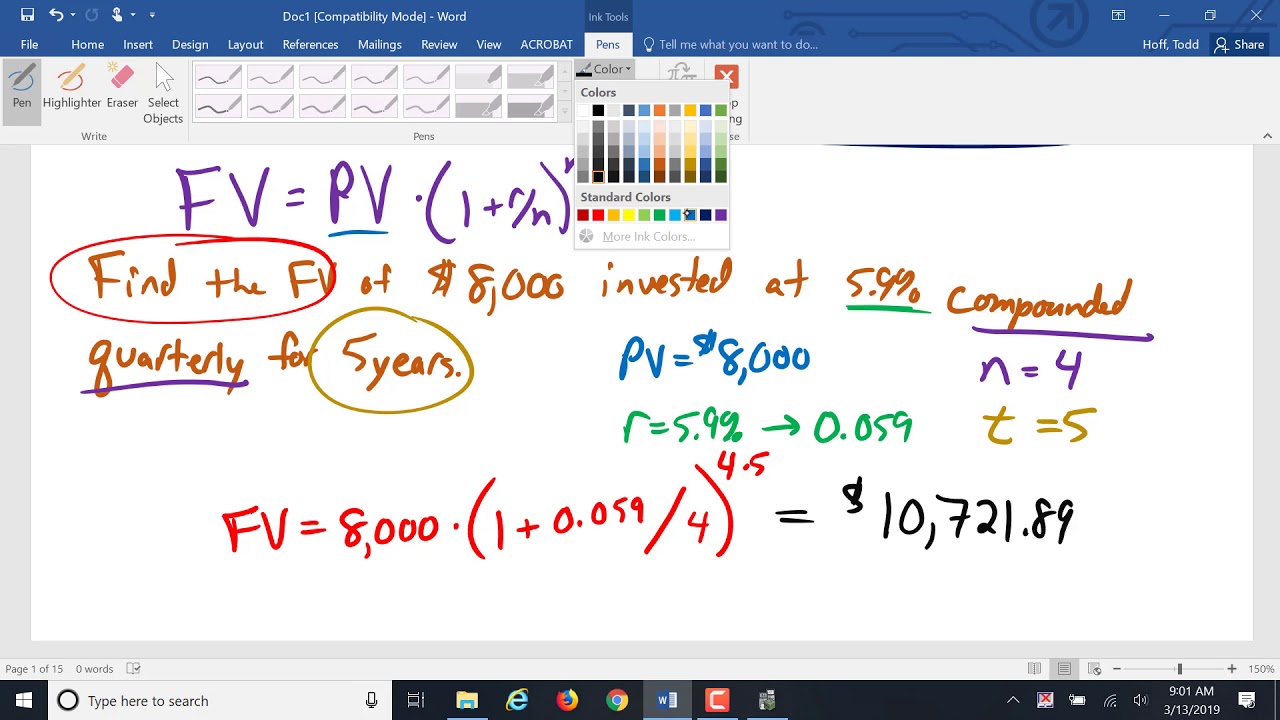 Doc1 [Compatibility Mode] - Word
Ink Tools
File Home Insert Design Layout References Mailings Review View ACROBAT Pens Tell me what you want to do... Hoff, Todd Share
Pen Highlighter Eraser Select Objects
Color
Write
Pens
Colors
Standard Colors
More Ink Colors...
FV = PV · (1 + r/n)
Find the FV of $8,000 invested at 5.9% compounded
quarterly for 5 years.
PV = $8,000
n = 4
r = 5.9% → 0.059
t = 5
FV = 8,000 · (1 + 0.059 / 4)^4·5 = $10,721.89
Page 1 of 15 0 words
150%
Type here to search
9:01 AM
3/13/2019